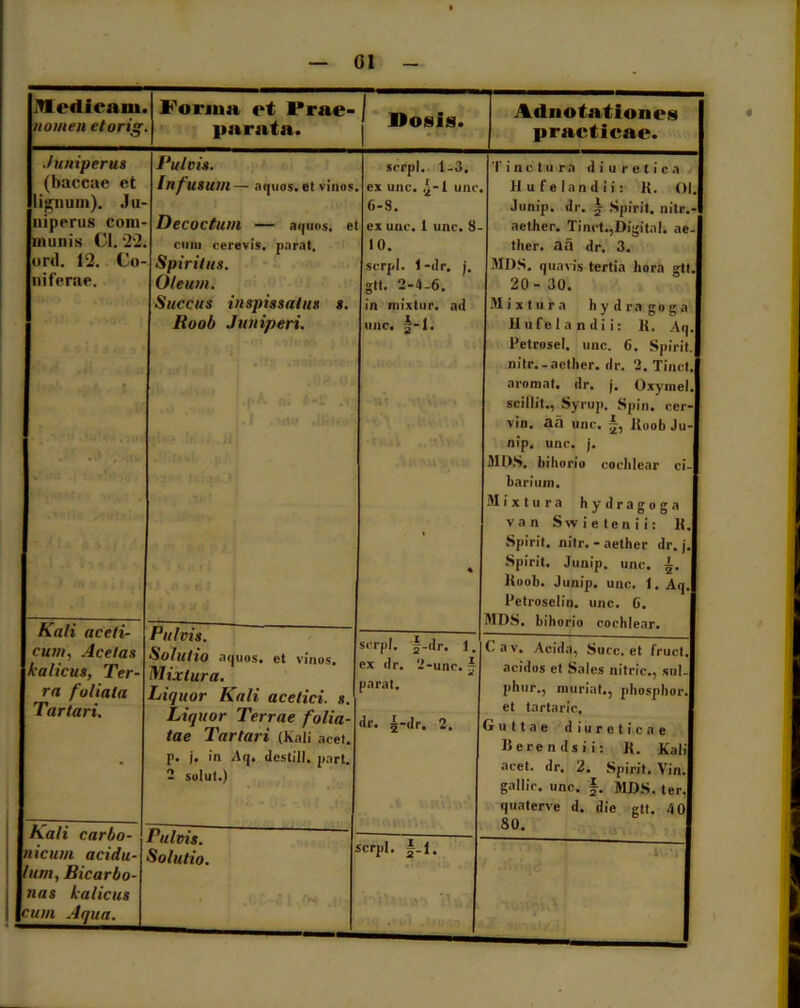 — 61 —
Medicam.
nomen et orig.
Forma et Prae-
parata.
Dosis.
Adnotationes
practicae.
Juniperus
(baccae et
lignum). Ju-
niperus com-
munis Cl. 22.
ord. 12. Co-
niferae.
Pulvis.
Infusum — aquos. et vinos.
Decoctum — aquos. et
cum cerevis. parat.
Spiritus.
Oleum.
Succus inspissatus s.
Roob Juniperi.
scrpl. 1-3.
ex unc. ½-1 unc.
6-8.
ex unc. 1 unc. 8-
10.
scrpl. 1-dr. j.
gtt. 2-4-6.
in mixtur. ad
unc. ½-1.
Tinctura diuretica
Hufelandii: R. Ol.
Junip. dr. ½ Spirit. nitr.-
aether. Tinct.,Digital. ae-
ther. aa dr. 3.
MDS. quavis tertia hora gtt.
20 - 30.
Mixtura hydragoga
Hufelandii: R. Aq.
Petrosel. unc. 6. Spirit.
nitr.-aether. dr. 2. Tinct.
aromat. dr. j. Oxymel.
scillit., Syrup. Spin. cer-
vin. aa unc. ½, Roob Ju-
nip. unc. j.
MDS. bihorio cochlear ci-
barium.
Mixtura hydragoga
van Swietenii: R.
Spirit. nitr. - aether dr. j.
Spirit. Junip. unc. ½.
Roob. Junip. unc. 1. Aq.
Petroselin. unc. 6.
MDS. bihorio cochlear.
Kali aceti-
cum, Acetas
kalicus, Ter-
ra foliata
Tartari.
Pulvis.
Solutio aquos. et vinos.
Mixtura.
Liquor Kali acetici. s.
Liquor Terrae folia-
tae Tartari (Kali acet.
p. j. in Aq. destill. part.
2 solut.)
scrpl. ½-dr. 1.
ex dr. 2-unc. ½
parat.
dr. ½-dr. 2.
Cav. Acida, Succ. et fruct.
acidos et Sales nitric., sul-
phur., muriat., phosphor.
et tartaric.
Guttae diureticae
Berendsii: R. Kali
acet. dr. 2. Spirit. Vin.
gallic. unc. ½. MDS. ter,
quaterve d. die gtt. 40
80.
Kali carbo-
nicum acidu-
lum, Bicarbo-
nas kalicus
cum Aqua.
Pulvis.
Solutio.
scrpl. ½-1.